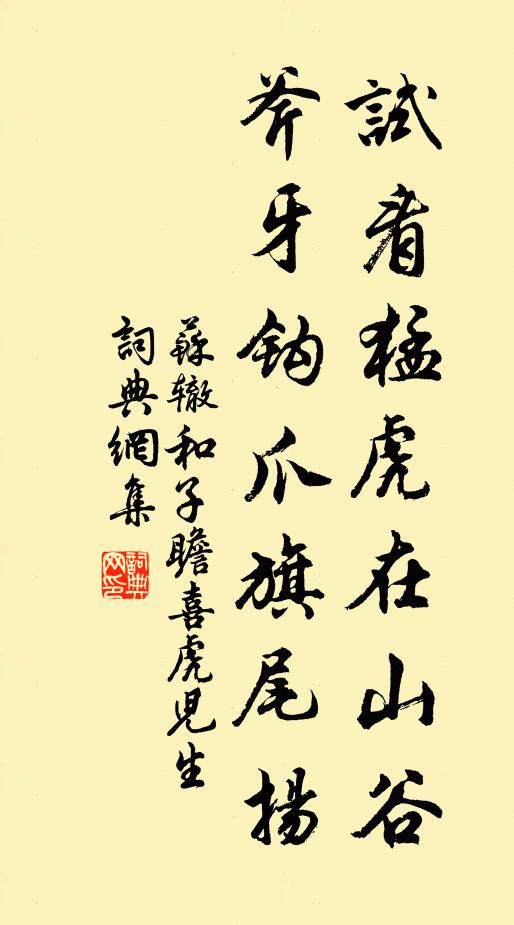 試看猛虎在山谷
斧牙鈎爪旗尾揚
蘇轍和子瞻喜虎兒生
詞典網集
詞典网印